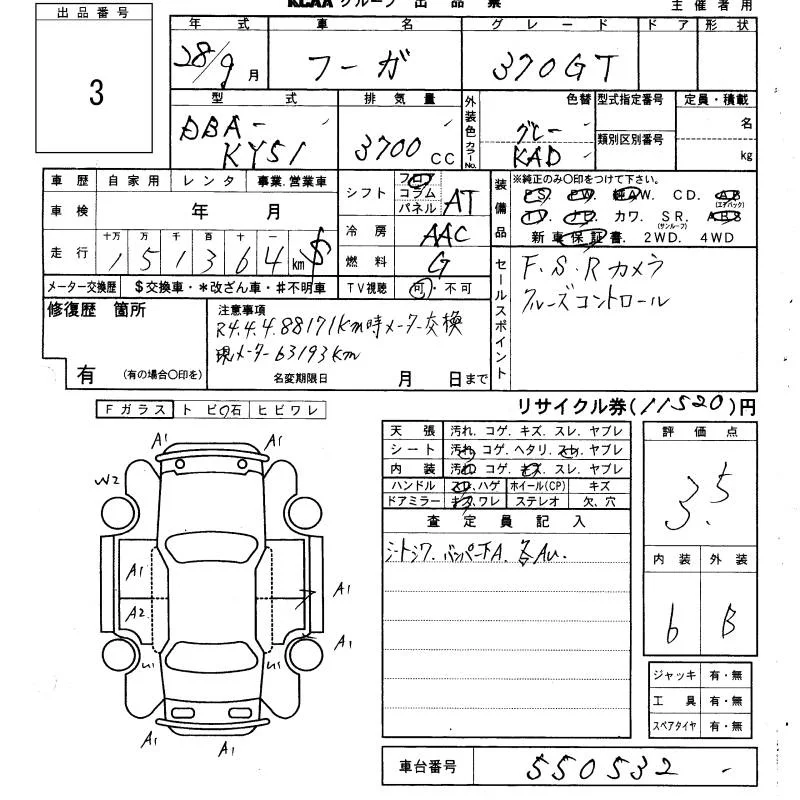 KCAA グループ 出 品 票
主 催 者 用
出 品 番 号
3
年 式 車 名 グ レ ー ド ド ア 形 状
28/9 月 フーガ 370GT
型 式 排 気 量 外装色 カラーNo. 色替 型式指定番号 定員・積載
DBA- グレー 名
KY51 3700 cc KAD 類別区別番号 kg
車 歴 自 家 用 レ ン タ 事業.営業車
車 検 年 月
走 行 十万 万 千 百 十 一
1 5 1 3 6 4 km $
メーター交換歴 $交換車・*改ざん車・#不明車
シフト フロア コラム パネル AT
冷 房 AAC
燃 料 G
T V 視聴 可・不 可
装備品 ※純正のみ〇印をつけて下さい。
PS. PW. 純AW. C D. AB (エアバック)
T V. ナビ. カワ. S R. (サンルーフ) ABS
新 車 保 証 書. 2WD. 4WD
セールスポイント
F.S.R カメラ
クルーズコントロール
修復歴 箇所
有 (有の場合〇印を)
注意事項
R4.4.4.88171km時メーター交換
現メーター63193km
名変期限日 月 日まで
リサイクル券(11520)円
F ガラス ト ビ 石 ヒ ビ ワ レ
A1 A1
W2
A1
A2
A1
A1
U1 U1
A1 A1
天 張 汚れ. コゲ. キズ. スレ. ヤブレ
シ ー ト 汚れ. コゲ. ヘタリ. スレ. ヤブレ
内 装 汚れ. コゲ. キズ. スレ. ヤブレ
ハンドル スレ. ハゲ ホイール(CP) キズ
ドアミラー キズ. ワレ ステレオ 欠、穴
査 定 員 記 入
シートシワ. バンパー下A. 各AU.
評 価 点
3.5
内 装 外 装
6 B
ジャッキ 有・無
工 具 有・無
スペアタイヤ 有・無
車台番号 550532